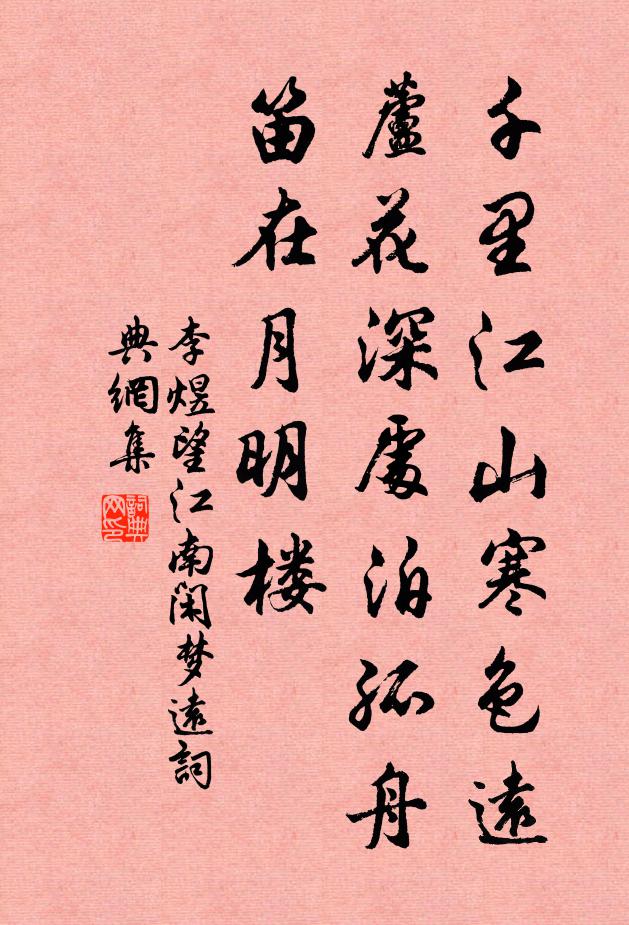 千里江山寒色遠
蘆花深處泊孤舟
笛在月明楼
李煜望江南闲梦遠詞
典網集
詞典网印